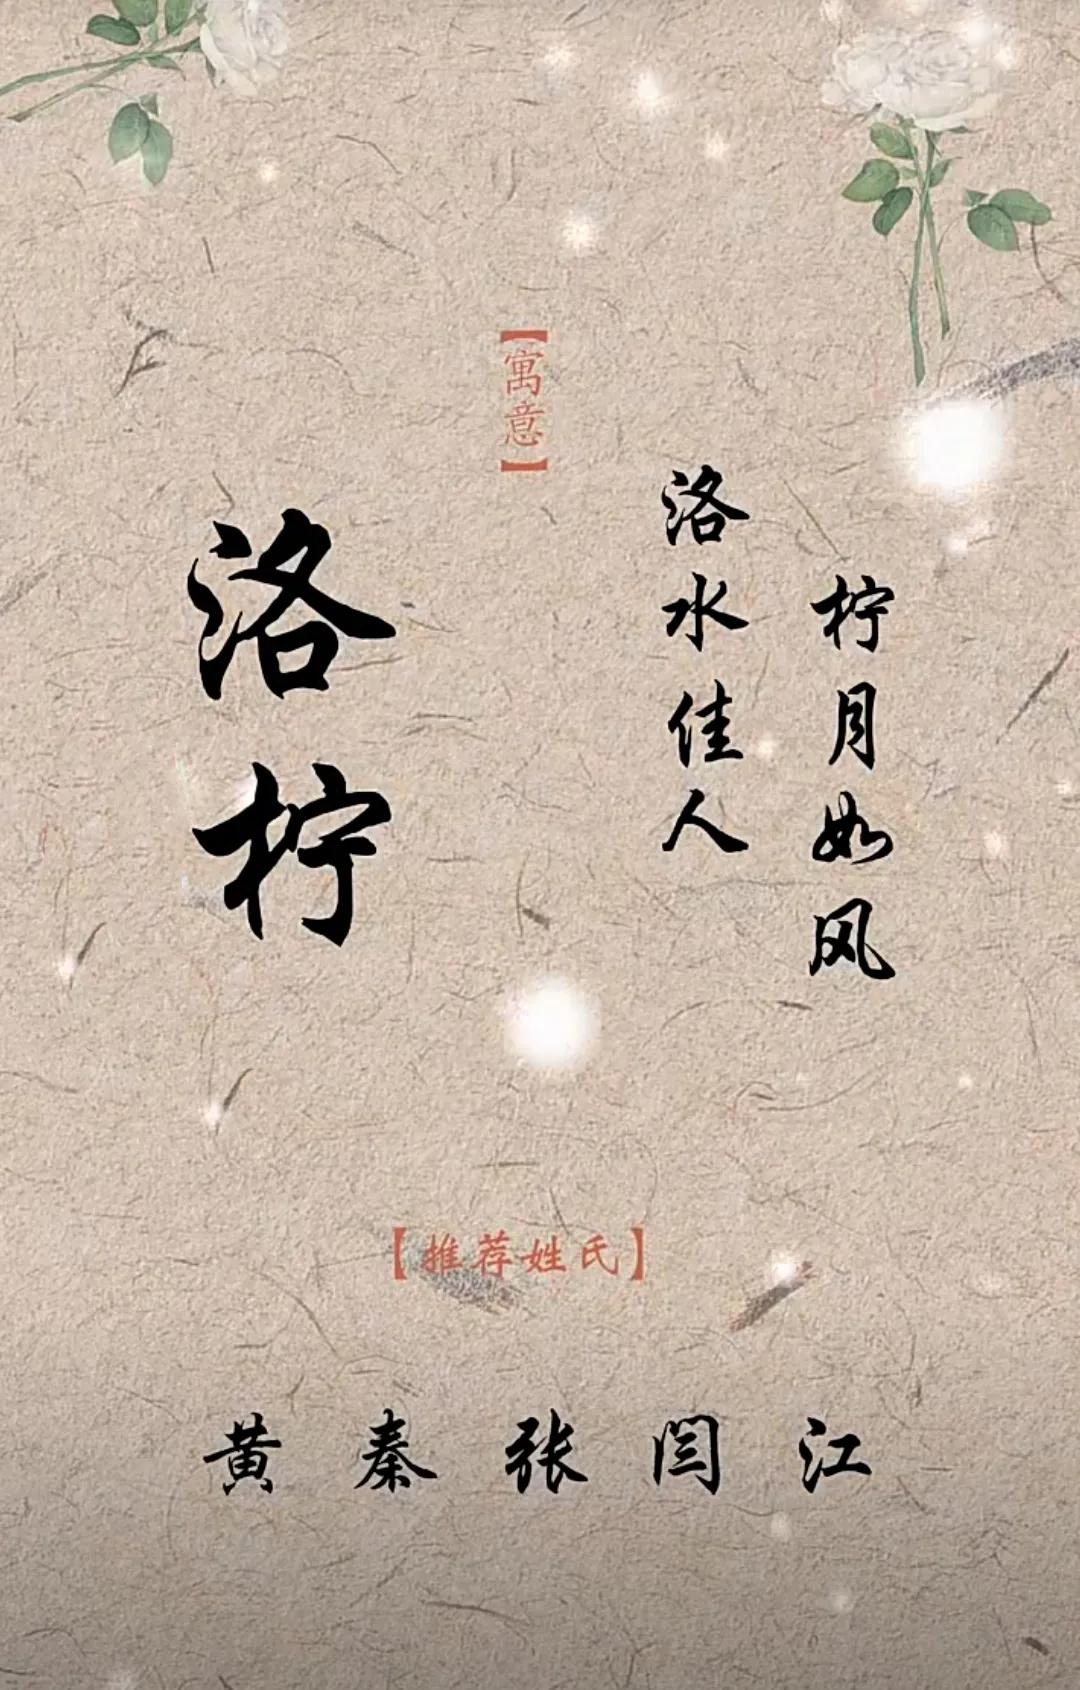 【寓意】
洛柠
洛水佳人
柠月如风
【推荐姓氏】
黄 秦 张 闫 江